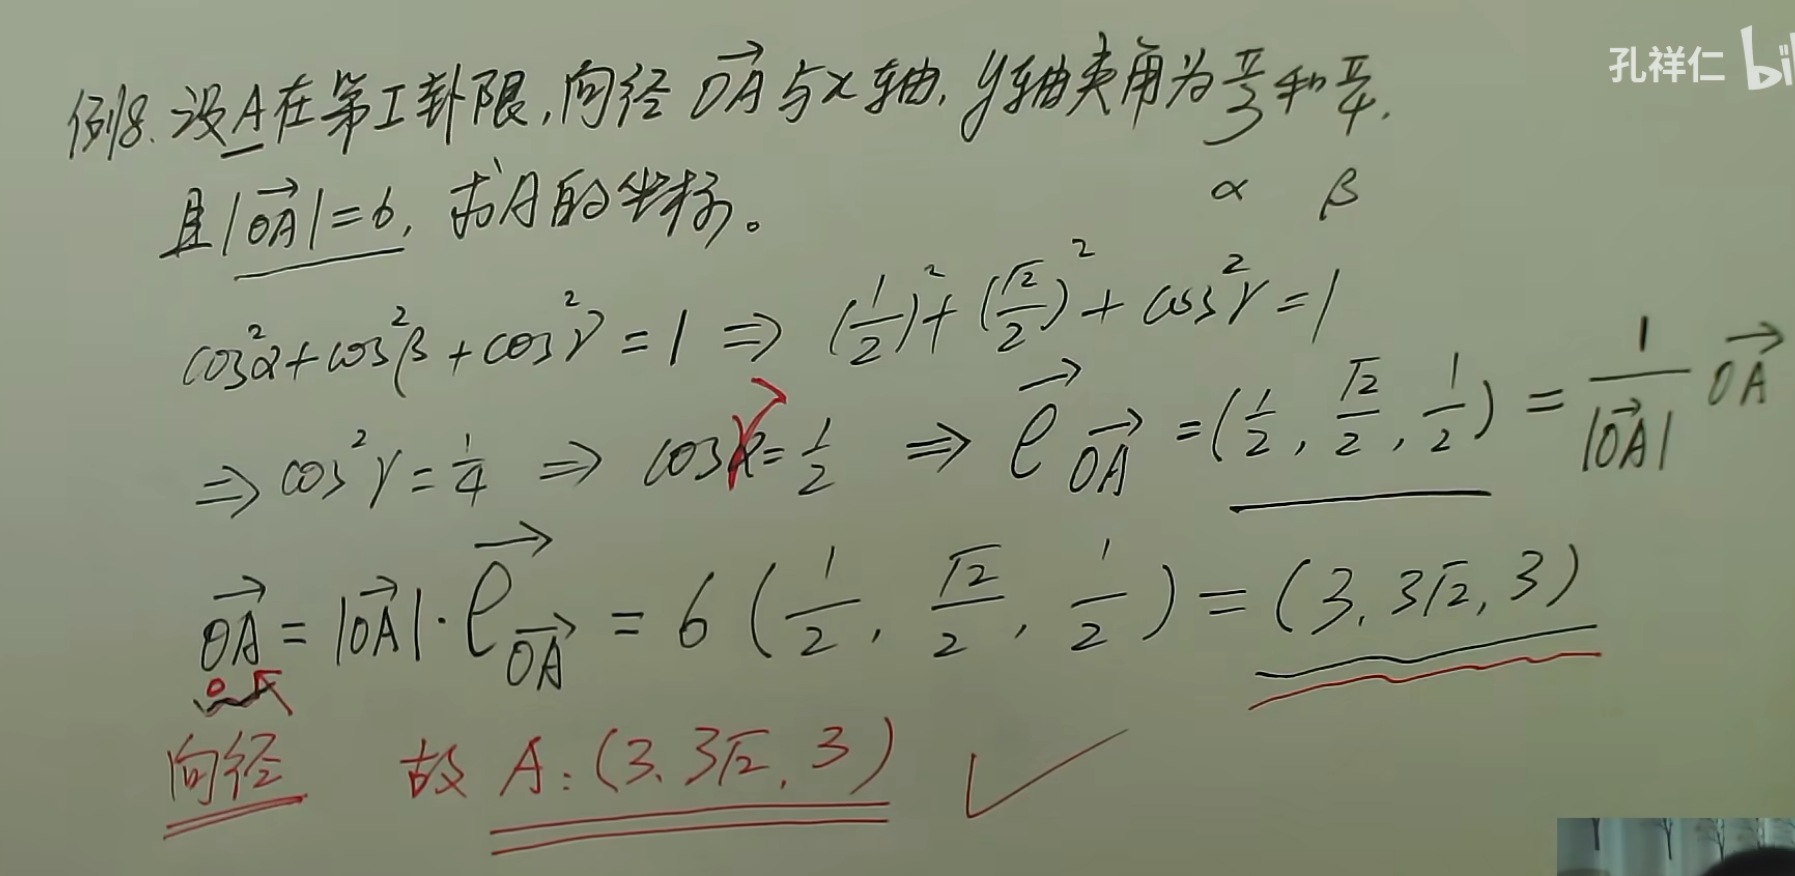 孔祥仁 bi
例8. 设A在第I卦限,向径 \overrightarrow{OA} 与x轴,y轴夹角为 π/3 和 π/4.
α β
且|\overrightarrow{OA}|=6, 求A的坐标。
cos²α+cos²β+cos²γ=1 ⇒ (1/2)²+(√2/2)²+cos²γ=1
⇒cos²γ=1/4 ⇒ cosγ=1/2 ⇒ \overrightarrow{e}_{\overrightarrow{OA}}=(1/2, √2/2, 1/2)=1/|\overrightarrow{OA}| \overrightarrow{OA}
\overrightarrow{OA}=|\overrightarrow{OA}|·\overrightarrow{e}_{\overrightarrow{OA}}=6(1/2, √2/2, 1/2)=(3, 3√2, 3)
向径 故 A:(3, 3√2, 3) ✓